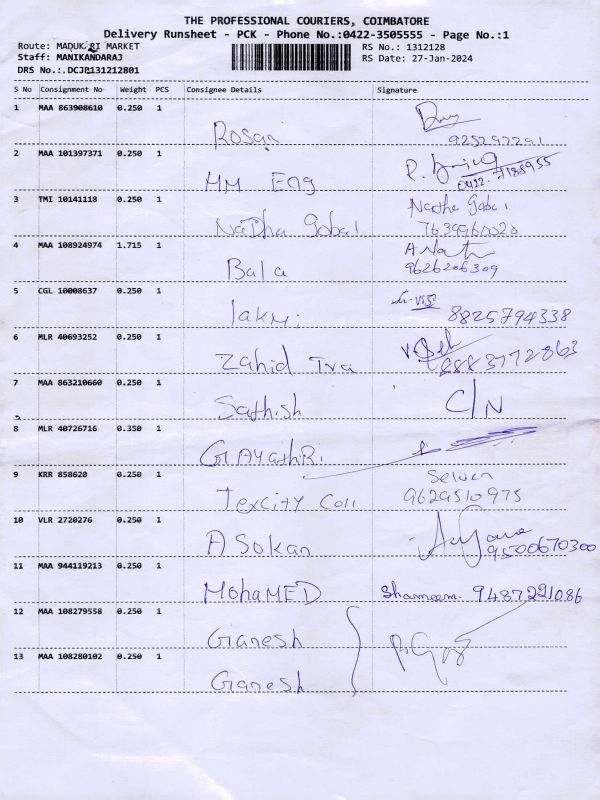 THE PROFESSIONAL COURIERS, COIMBATORE
Delivery Runsheet - PCK - Phone No.:0422-3505555 - Page No.:1
Route: MADUKRI MARKET
RS No.: 1312128
Staff: MANIKANDARAJ
RS Date: 27-Jan-2024
DRS No.: DCJP131212801
S No Consignment No Weight PCS Consignee Details Signature
1 MAA 863908610 0.250 1 Rosari
925297291
2 MAA 101397371 0.250 1 MM Eng
0422-7188955
3 TMI 10141118 0.250 1 Nadha Gobal Nadha Gobal
7639960020
4 MAA 108924974 1.715 1 Bala
9626206309
5 CGL 10008637 0.250 1 lakmi
8825794338
6 MLR 40693252 0.250 1 Zahid Tra 8883772863
7 MAA 863210660 0.250 1 Sathish C/N
8 MLR 40726716 0.350 1 GAYathRi
9 KRR 858620 0.250 1 Texcity Coll Selven
9629510975
10 VLR 2720276 0.250 1 Asokan 9500670300
11 MAA 944119213 0.250 1 MohaMED Shameem 9487291086
12 MAA 108279558 0.250 1 Ganesh
13 MAA 108280102 0.250 1 Ganesh